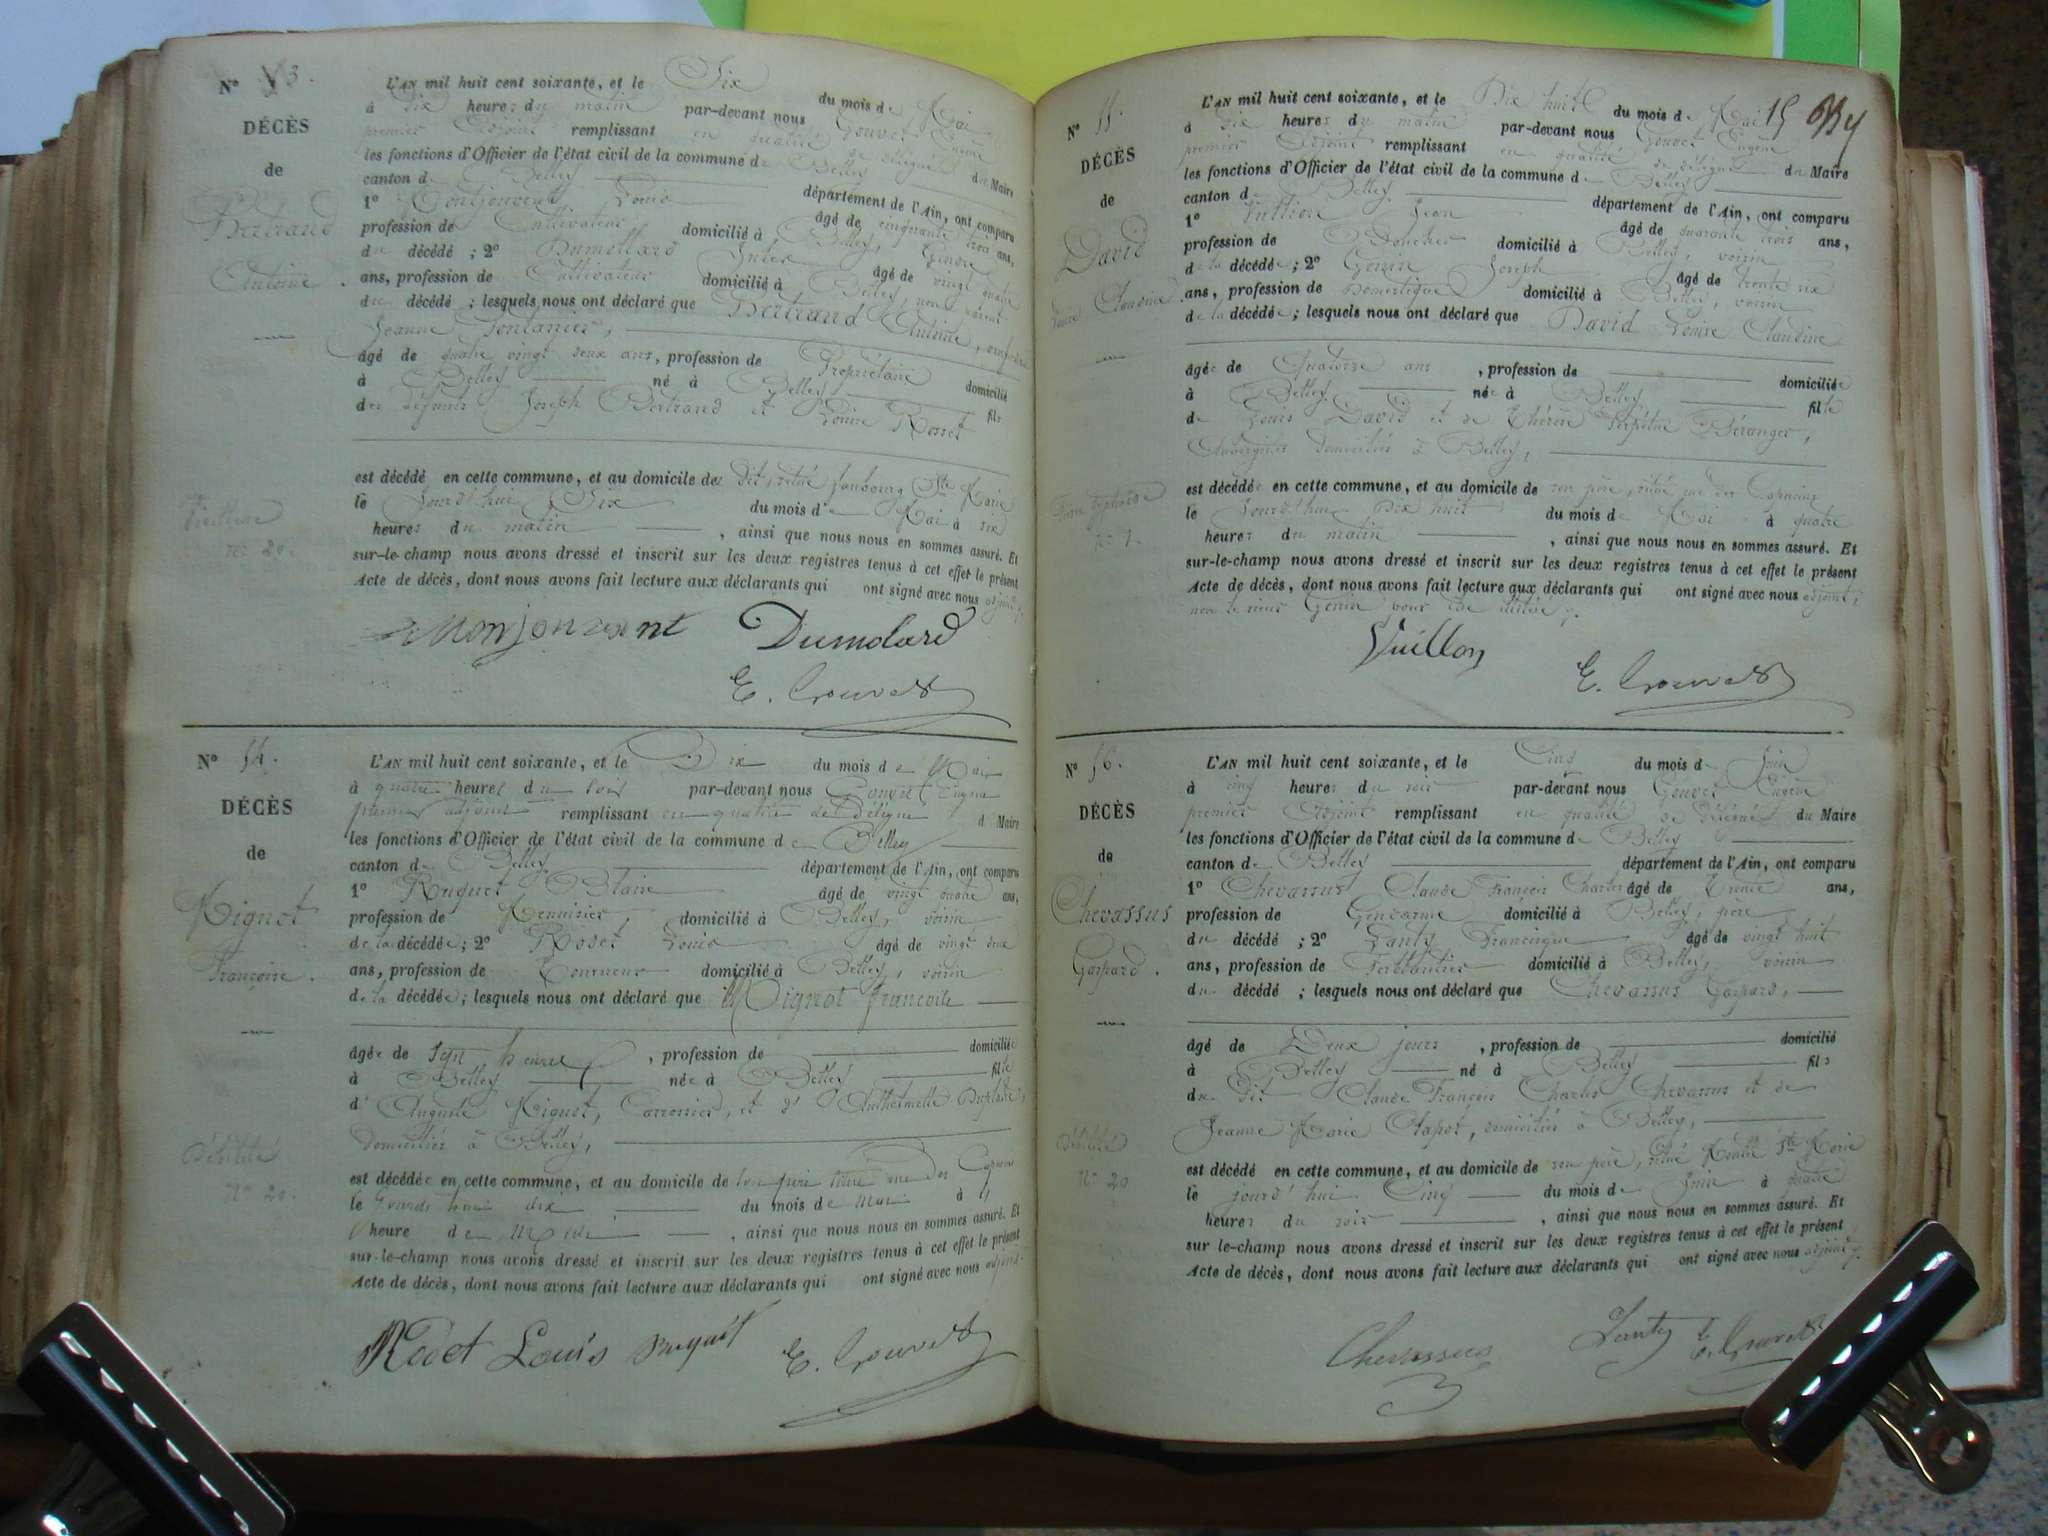 N° 53.
DÉCÈS
de
Bertrand
Antoine.
Vieillesse
n° 20.
L'AN mil huit cent soixante, et le Six du mois de Mai
à dix heures du matin par-devant nous Gouvet Eugène
premier Adjoint remplissant en qualité de délégué du Maire
les fonctions d'Officier de l'état civil de la commune de Belley
canton de Belley département de l'Ain, ont comparu
1° Montjouvent Louis âgé de cinquante trois ans,
profession de Cultivateur domicilié à Belley, Gendre
du décédé ; 2° Dumollard âgé de vingt quatre
ans, profession de Cultivateur domicilié à Belley, non parent
du décédé ; lesquels nous ont déclaré que Bertrand Antoine, veuf de
Jeanne Fontanier,
âgé de quatre vingt deux ans, profession de Propriétaire domicilié
à Belley né à Belley, fils
des défunts Joseph Bertrand et Louise Rosset
est décédé en cette commune, et au domicile de dit, situé faubourg Ste Marie
le Jourd'hui Six du mois de Mai à six
heures du matin , ainsi que nous nous en sommes assuré. Et
sur-le-champ nous avons dressé et inscrit sur les deux registres tenus à cet effet le présent
Acte de décès, dont nous avons fait lecture aux déclarants qui ont signé avec nous adjoint
Monjouvent Dumolard
E. Gouvet
N° 54.
DÉCÈS
de
Mignot
Françoise.
Débilité
N° 20.
L'AN mil huit cent soixante, et le Dix du mois de Mai
à quatre heures du soir par-devant nous Gouvet Eugène
premier adjoint remplissant en qualité de Délégué d Maire
les fonctions d'Officier de l'état civil de la commune de Belley
canton de Belley département de l'Ain, ont comparu
1° Ruquet Blaise âgé de vingt quatre ans,
profession de Menuisier domicilié à Belley, voisin
de la décédée ; 2° Rodet Louis âgé de vingt deux
ans, profession de Tourneur domicilié à Belley, voisin
de la décédée ; lesquels nous ont déclaré que Mignot Françoise
âgée de sept heures , profession de domiciliée
à Belley née à Belley fille
d' Auguste Mignot, Carrossier, et d'Anthelmette
domiciliés à Belley,
est décédée en cette commune, et au domicile de son père situé rue des Capucins
le Jourd'hui dix du mois de Mai à
heure de , ainsi que nous nous en sommes assuré. Et
sur-le-champ nous avons dressé et inscrit sur les deux registres tenus à cet effet le présent
Acte de décès, dont nous avons fait lecture aux déclarants qui ont signé avec nous adjoint
Rodet Louis Ruquet E. Gouvet
15
N° 55.
DÉCÈS
de
David
Louise Claudine.
Fièvre typhoïde
n° 1.
L'AN mil huit cent soixante, et le Dix huit du mois de Mai
à dix heures du matin par-devant nous Gouvet Eugène
premier Adjoint remplissant en qualité de délégué du Maire
les fonctions d'Officier de l'état civil de la commune de Belley
canton de Belley département de l'Ain, ont comparu
1° Vuillon Jean âgé de quarante trois ans,
profession de Boucher domicilié à Belley, voisin
de la décédée ; 2° Genin Joseph âgé de trente six
ans, profession de Domestique domicilié à Belley, voisin
de la décédée ; lesquels nous ont déclaré que David Louise Claudine
âgée de Quatorze ans , profession de domiciliée
à Belley née à Belley fille
de Louis David et de Thérèse Perpétue Béranger,
Aubergistes domiciliés à Belley,
est décédée en cette commune, et au domicile de son père, situé rue des Capucins
le Jourd'hui Dix huit du mois de Mai à quatre
heures du matin , ainsi que nous nous en sommes assuré. Et
sur-le-champ nous avons dressé et inscrit sur les deux registres tenus à cet effet le présent
Acte de décès, dont nous avons fait lecture aux déclarants qui ont signé avec nous adjoint,
non le sieur Genin pour être illétré
Vuillon E. Gouvet
N° 56.
DÉCÈS
de
Chevassus
Gaspard.
Débilité
N° 20
L'AN mil huit cent soixante, et le Cinq du mois de Juin
à cinq heures du soir par-devant nous Gouvet Eugène
premier Adjoint remplissant en qualité de délégué du Maire
les fonctions d'Officier de l'état civil de la commune de Belley
canton de Belley département de l'Ain, ont comparu
1° Chevassus Claude François Charles âgé de Trente ans,
profession de Gendarme domicilié à Belley, père
du décédé ; 2° Lanty Francisque âgé de vingt huit
ans, profession de Ferblantier domicilié à Belley, voisin
du décédé ; lesquels nous ont déclaré que Chevassus Gaspard,
âgé de Deux jours , profession de domicilié
à Belley né à Belley fils
du dit Claude François Charles Chevassus et de
Jeanne Marie Clapot, domiciliés à Belley,
est décédé en cette commune, et au domicile de son père, situé Montée Ste Marie
le jourd'hui Cinq du mois de Juin à quatre
heures du soir , ainsi que nous nous en sommes assuré. Et
sur le-champ nous avons dressé et inscrit sur les deux registres tenus à cet effet le présent
Acte de décès, dont nous avons fait lecture aux déclarants qui ont signé avec nous adjoint
Chevassus Lanty E. Gouvet